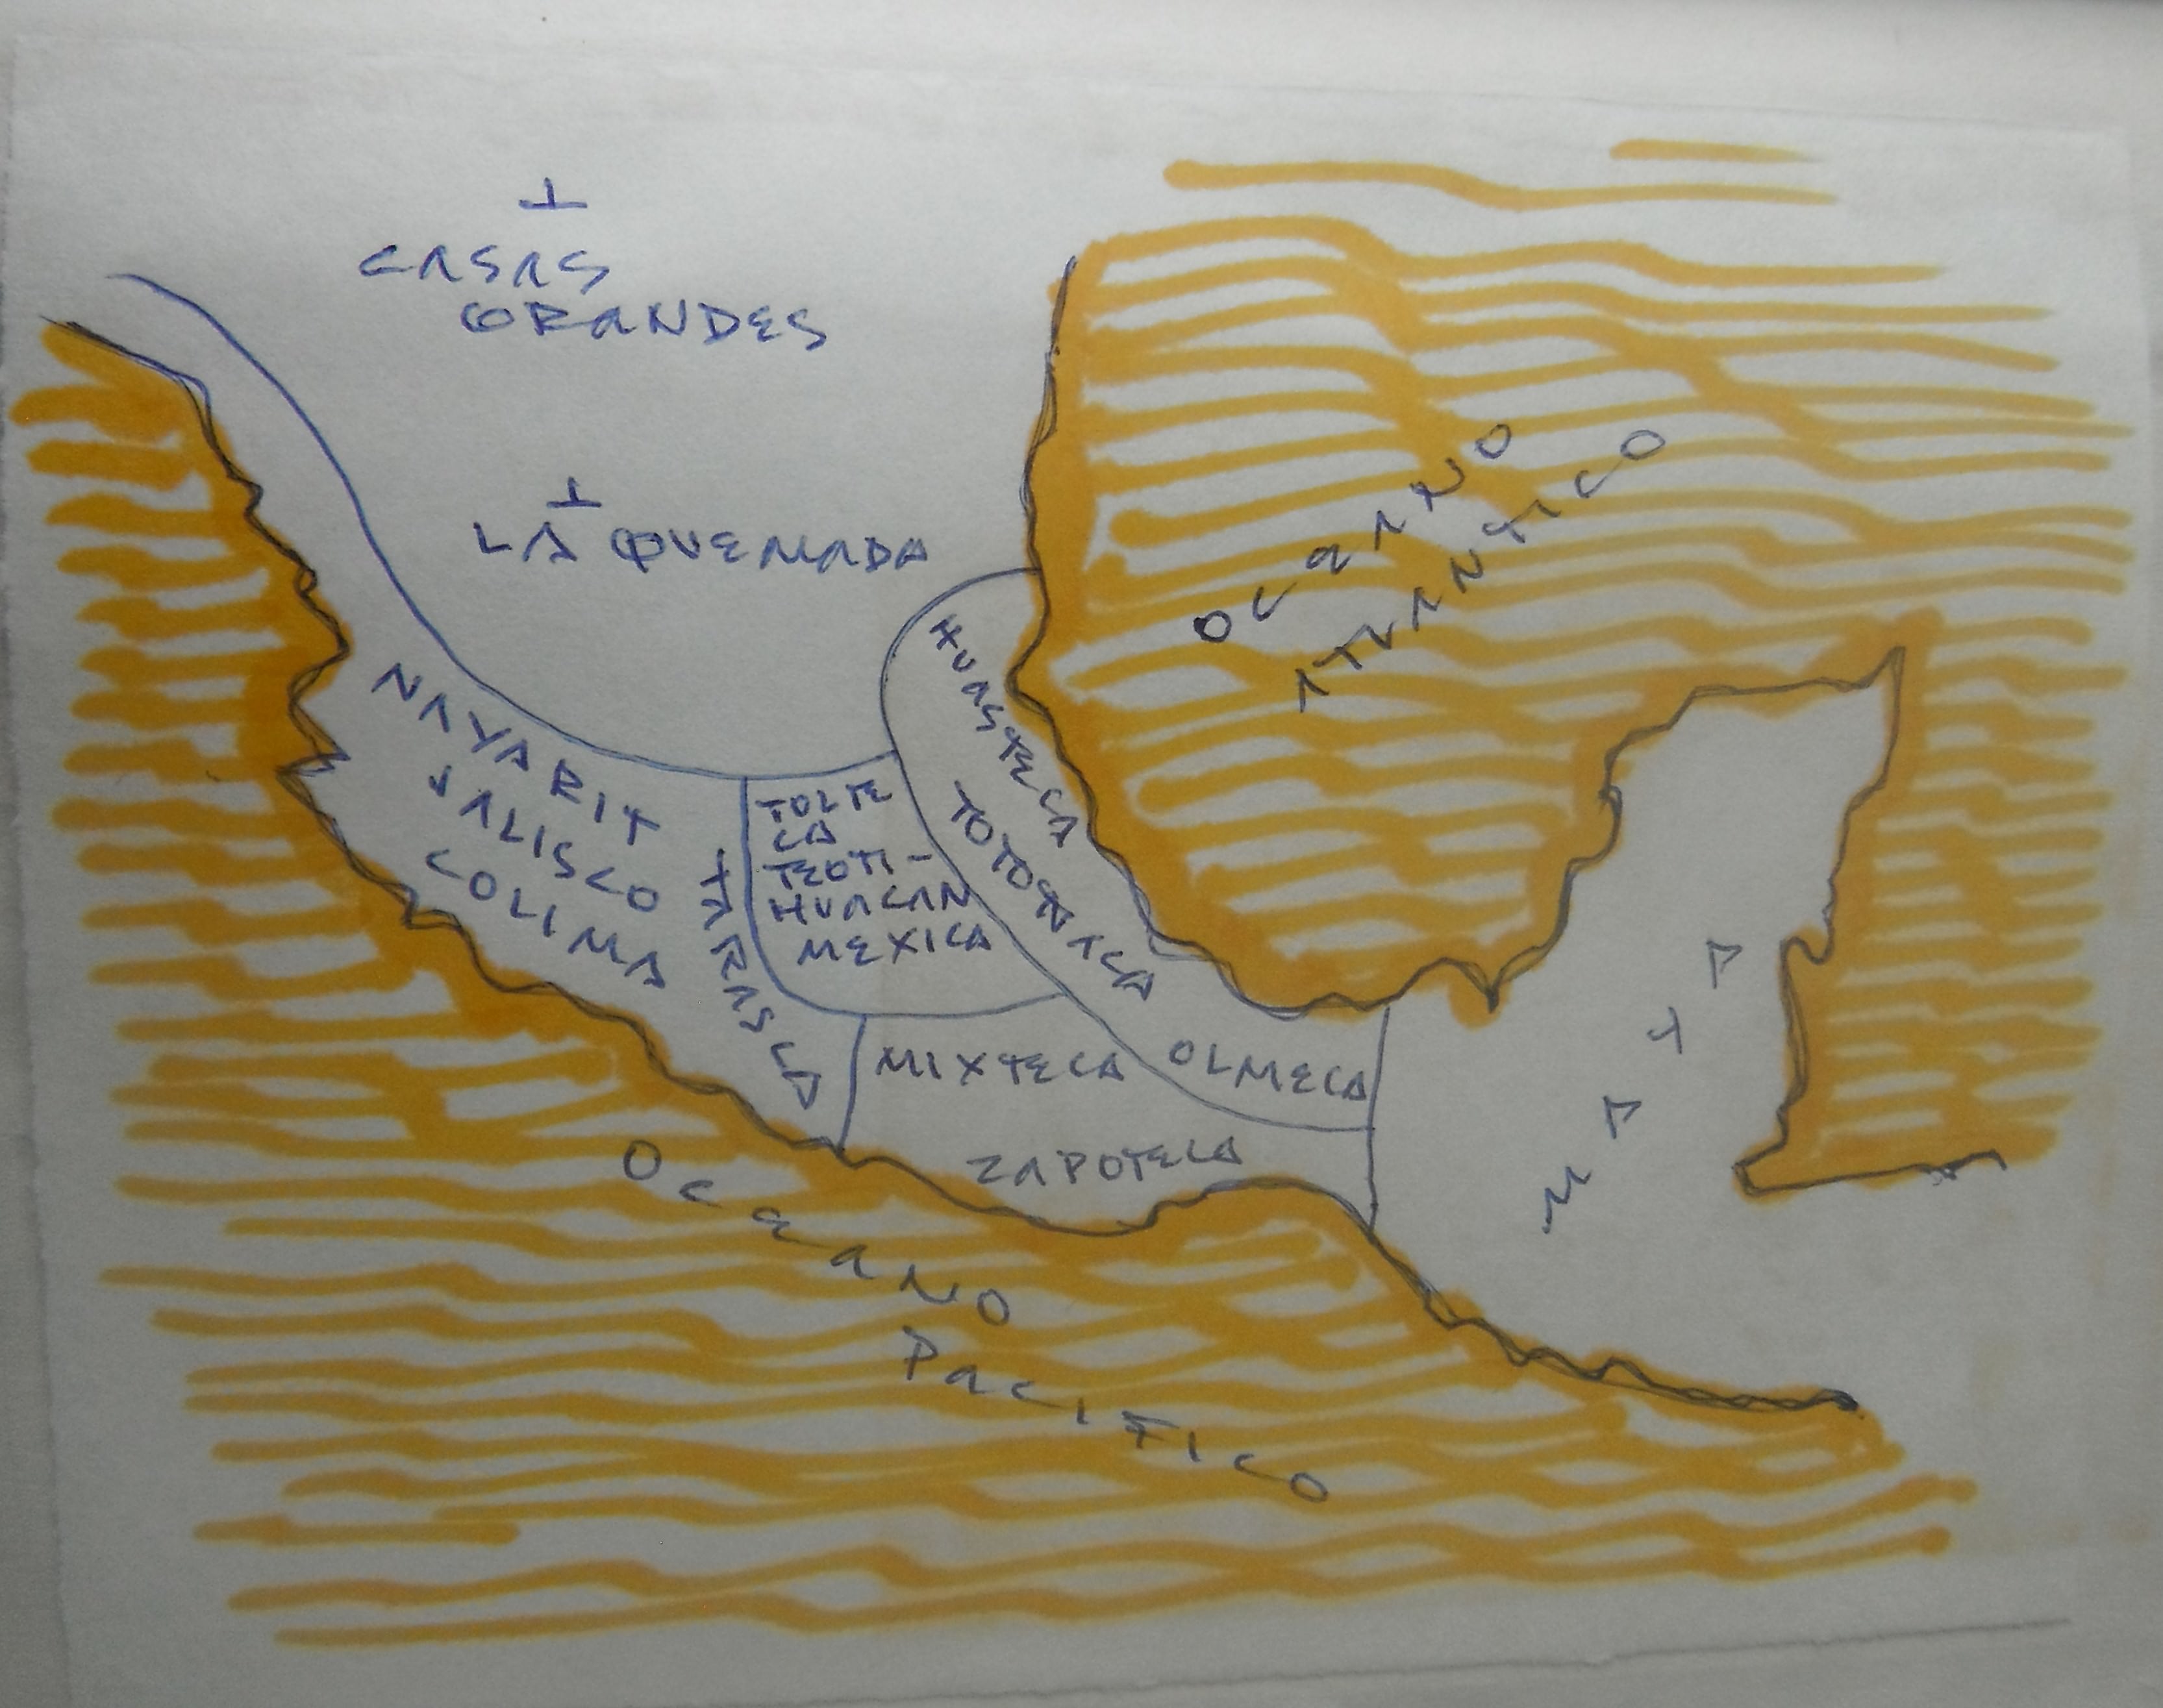 CASAS
GRANDES
LA QUEMADA
OCEANO
ATLANTICO
HUASTECA
TOTONACA
OLMECA
NAYARIT
JALISCO
COLIMA
TARASCA
TOLTE
CA
TEOTI-
HUACAN
MEXICA
MIXTECA
ZAPOTECA
MAYA
OCEANO
PACIFICO